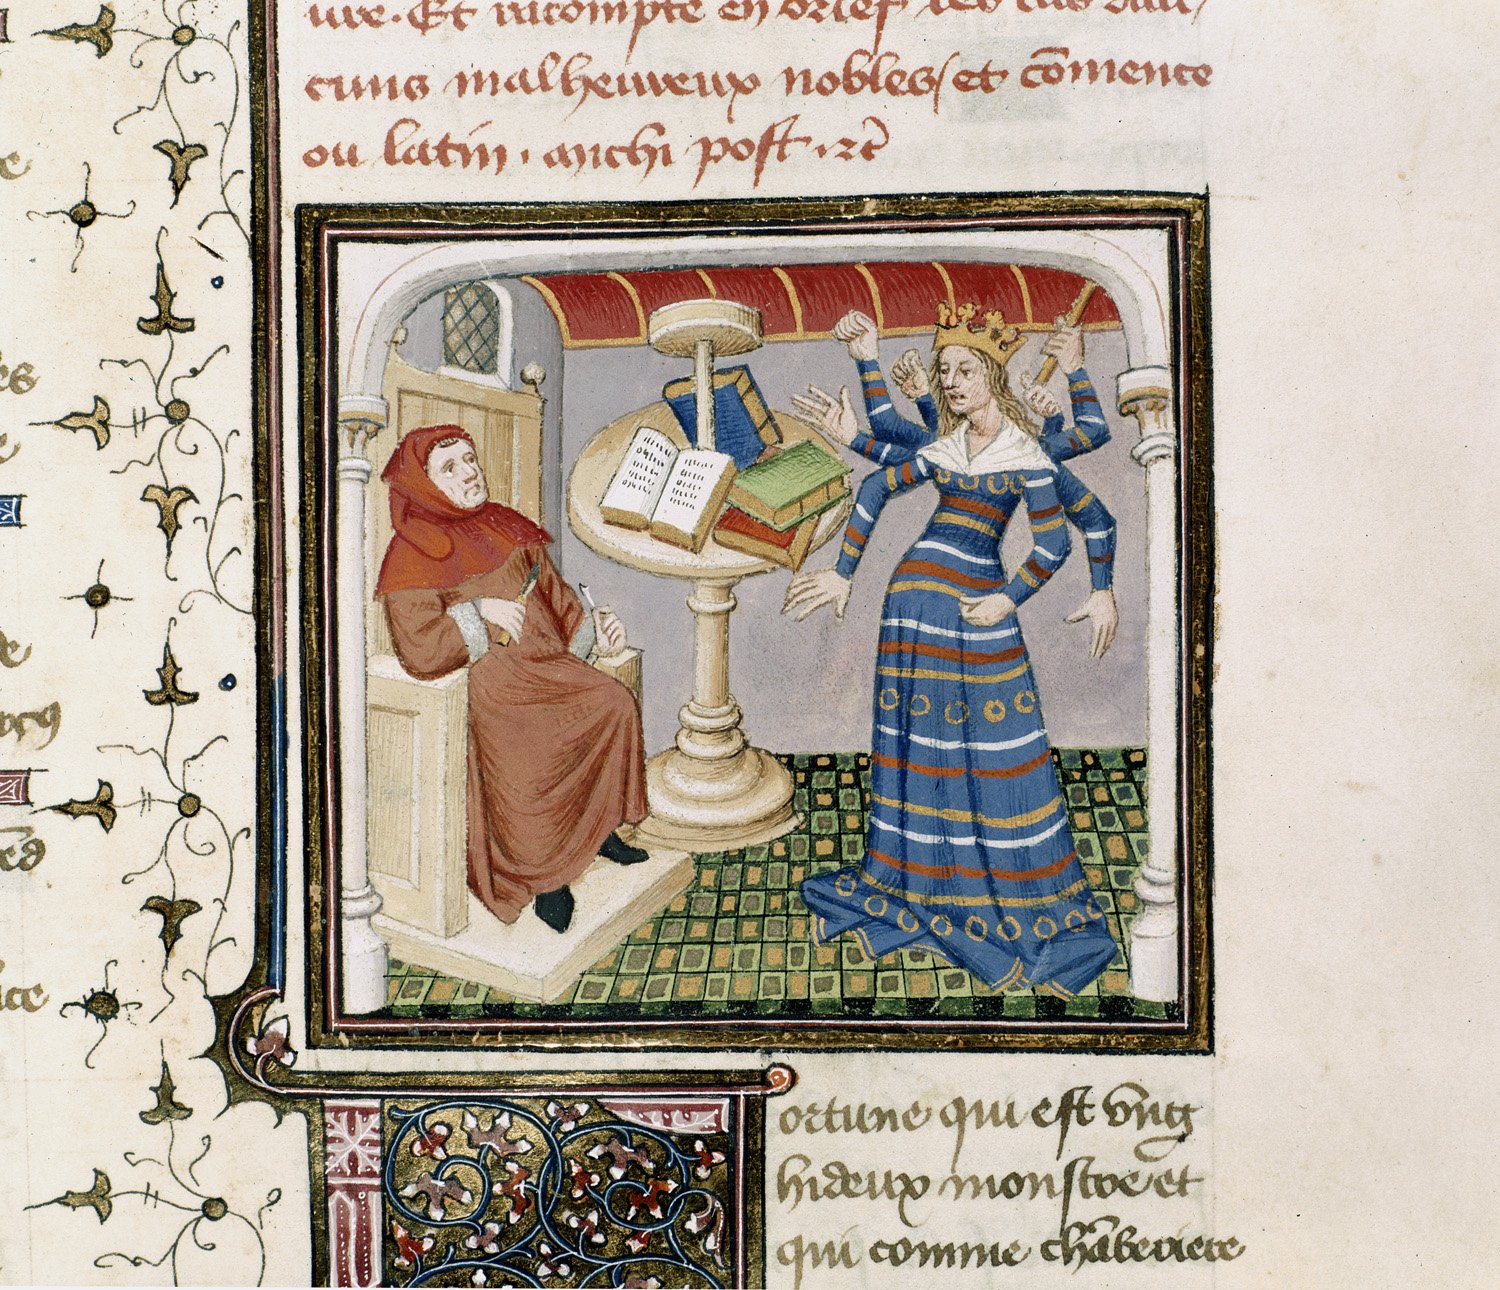 ure. Et racompte en brief les cas dau/
cuns malheureux nobles/ et cōmence
ou latin. michi post. ⁊c̄
ortune qui est vng
hideux monstre et
qui comme chāberiere